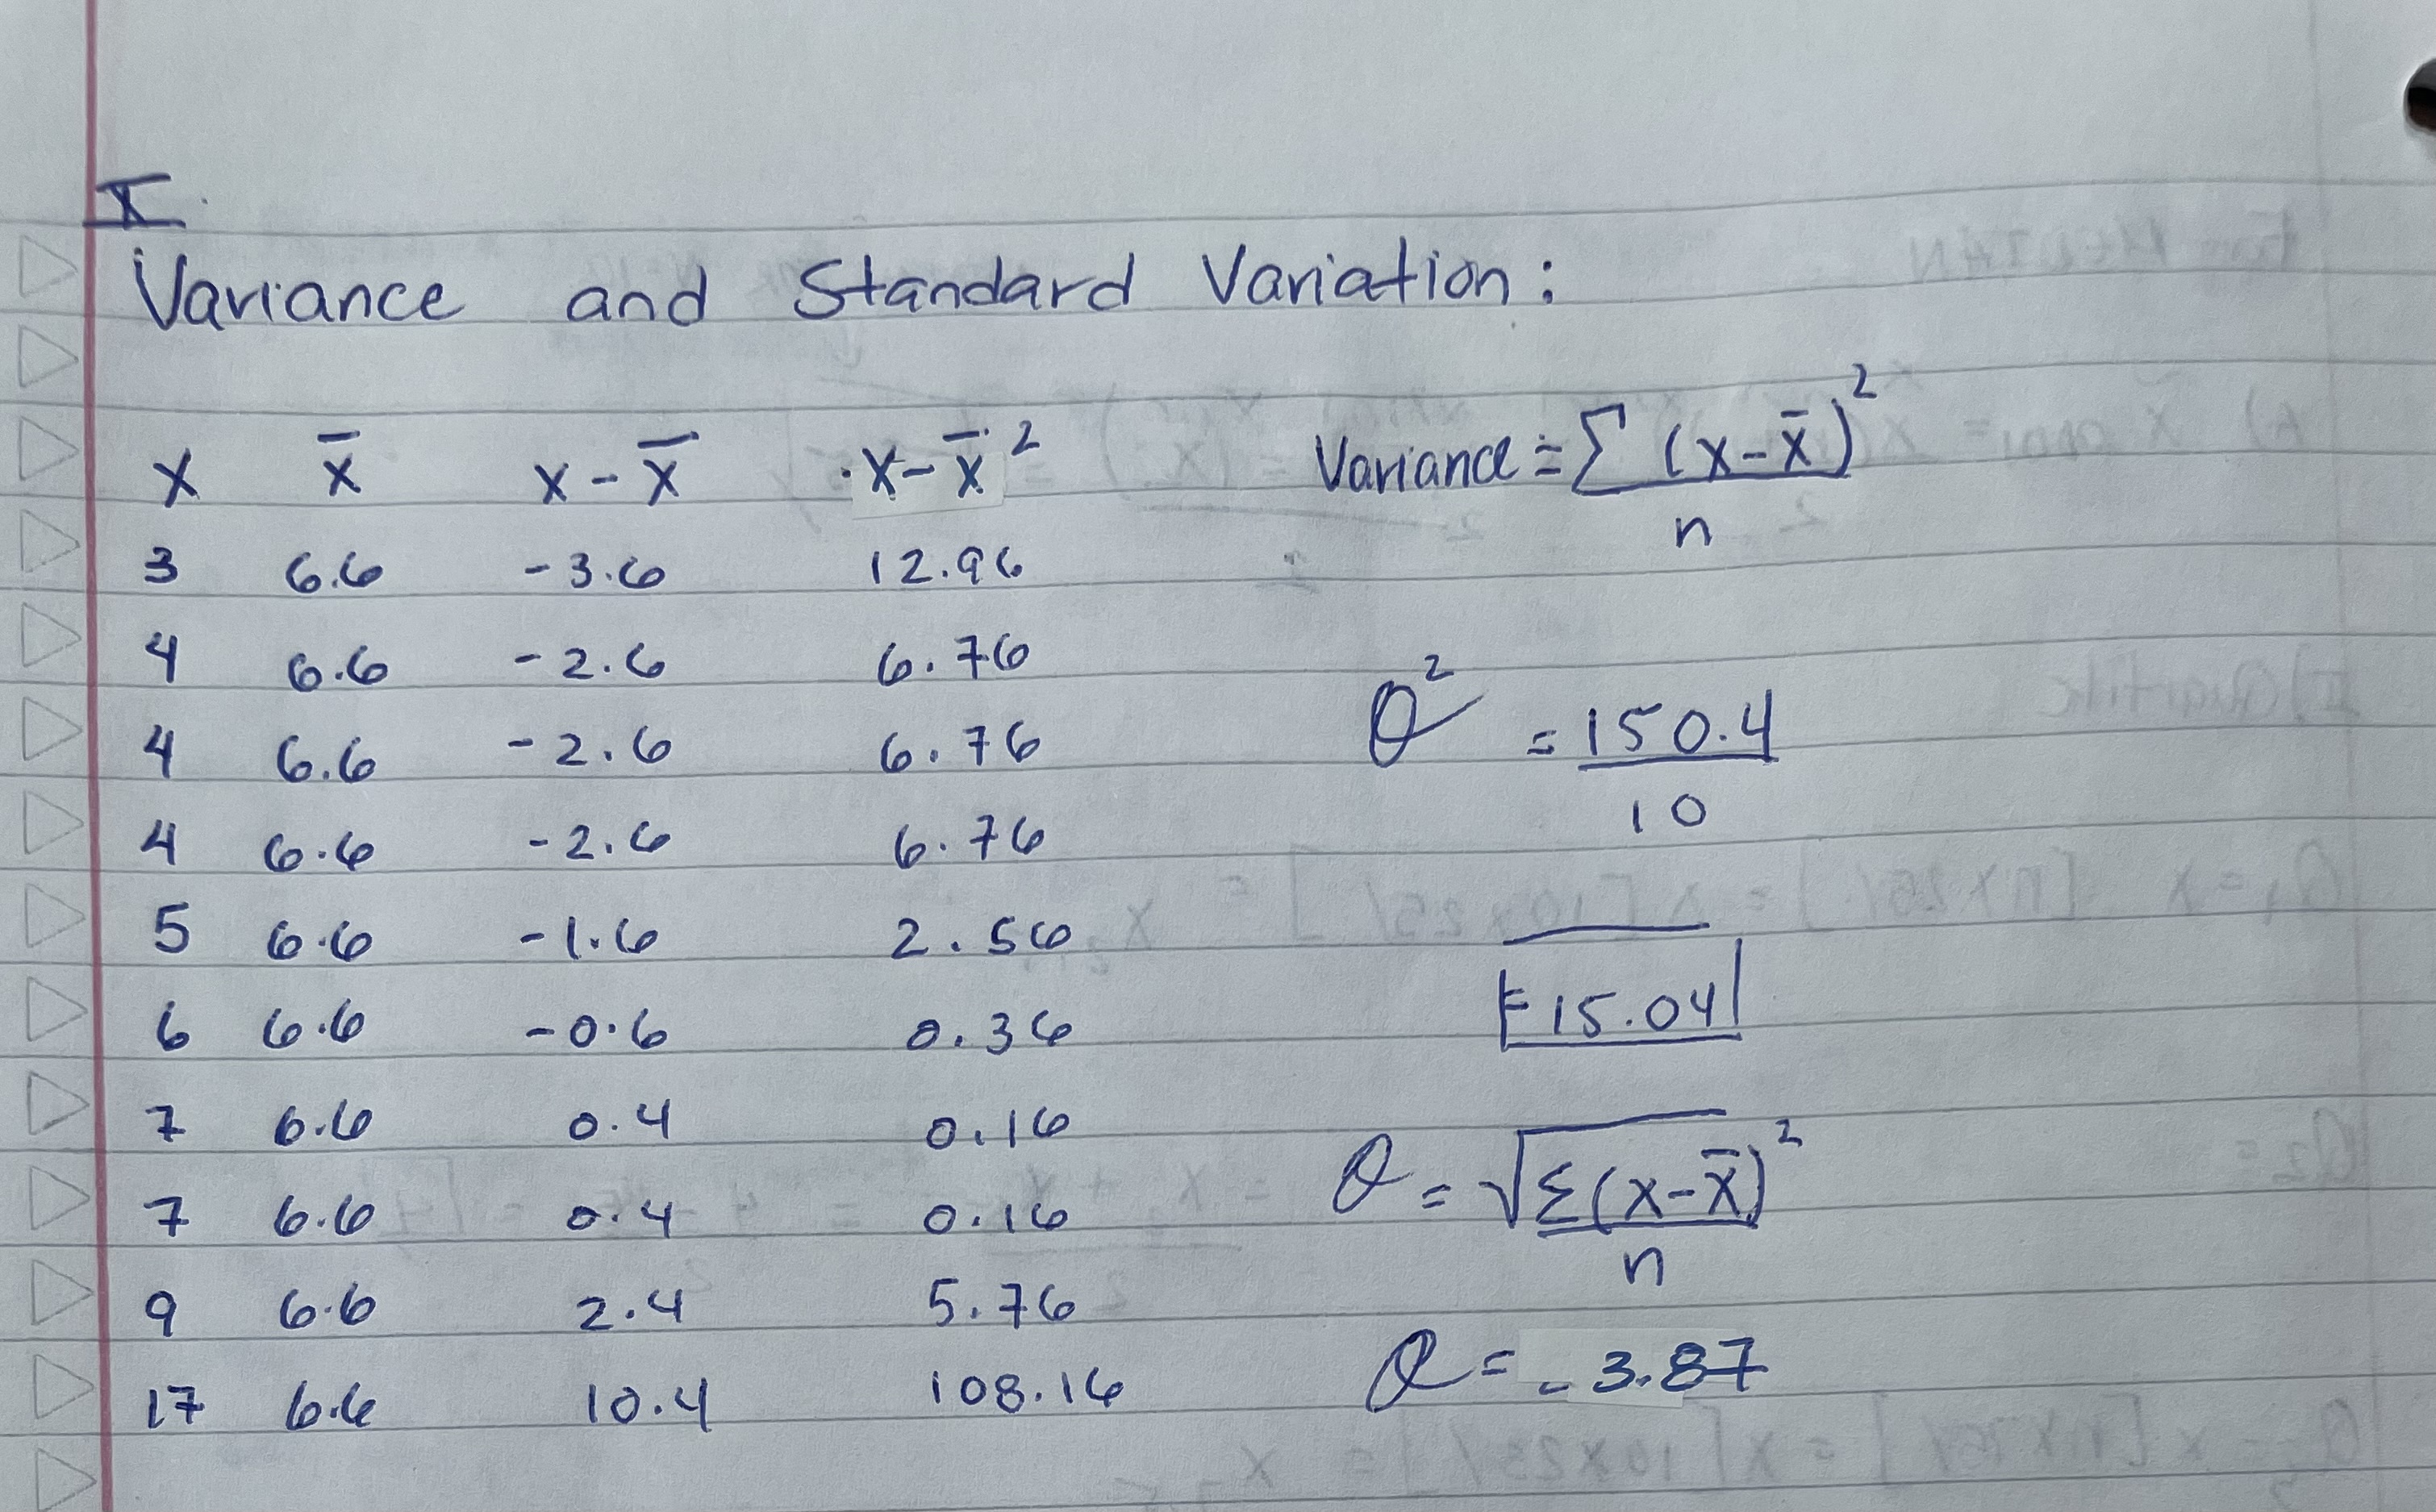 I.
Variance and Standard Variation:
x x̄ x-x̄ x-x̄²
3 6.6 -3.6 12.96
4 6.6 -2.6 6.76
4 6.6 -2.6 6.76
4 6.6 -2.6 6.76
5 6.6 -1.6 2.56
6 6.6 -0.6 0.36
7 6.6 0.4 0.16
7 6.6 0.4 0.16
9 6.6 2.4 5.76
17 6.6 10.4 108.16
Variance = Σ (x-x̄)²
n
σ² = 150.4
10
= 15.04
σ = √Σ(x-x̄)²
n
σ = 3.87